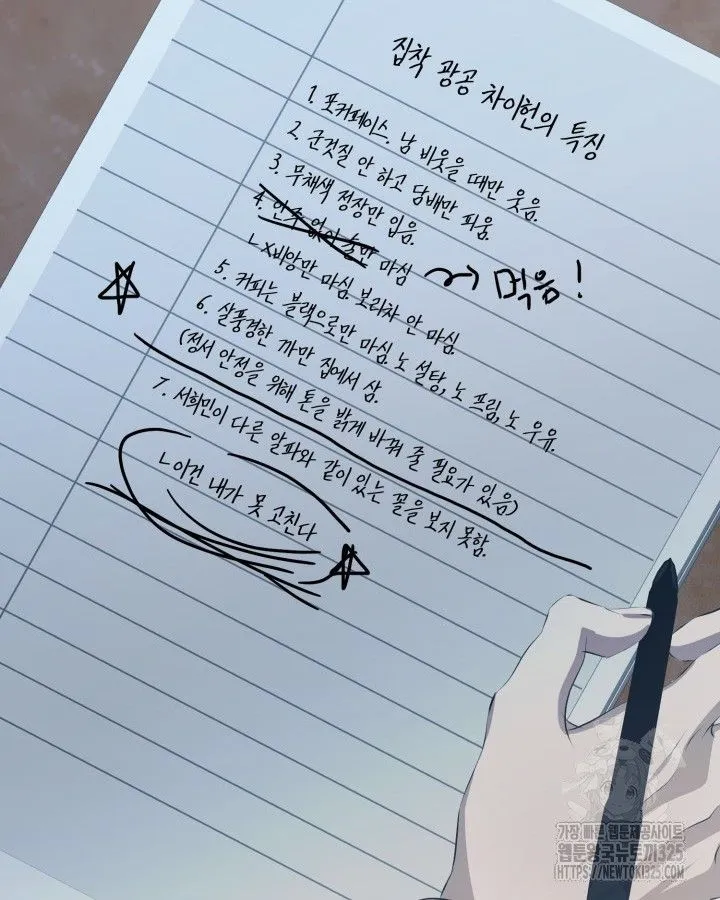 집착 광공 차이헌의 특징
1. 포커페이스. 남 비웃을 때만 웃음.
2. 군것질 안 하고 담배만 피움.
3. 무채색 정장만 입음.
4. 안주 없이 술만 마심 → 먹음!
ㄴX비앙만 마심. 보리차 안 마심.
5. 커피는 블랙으로만 마심. 노 설탕, 노 프림, 노 우유.
6. 살풍경한 까만 집에서 삶.
(정서 안정을 위해 톤을 밝게 바꿔 줄 필요가 있음)
7. 서희민이 다른 알파와 같이 있는 꼴을 보지 못함.
ㄴ이건 내가 못 고친다
가장 빠른 웹툰제공사이트
웹툰왕국뉴토끼325
HTTPS://NEWTOKI325.COM